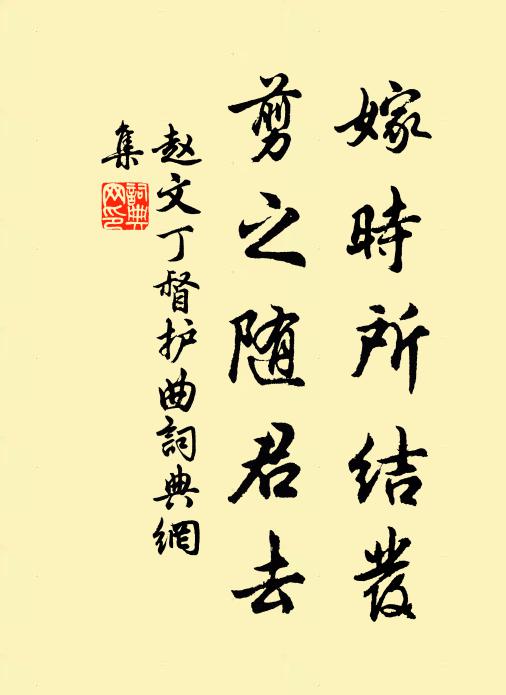 嫁時所结發
剪之随君去
赵文丁督护曲詞典網
集
詞典网印